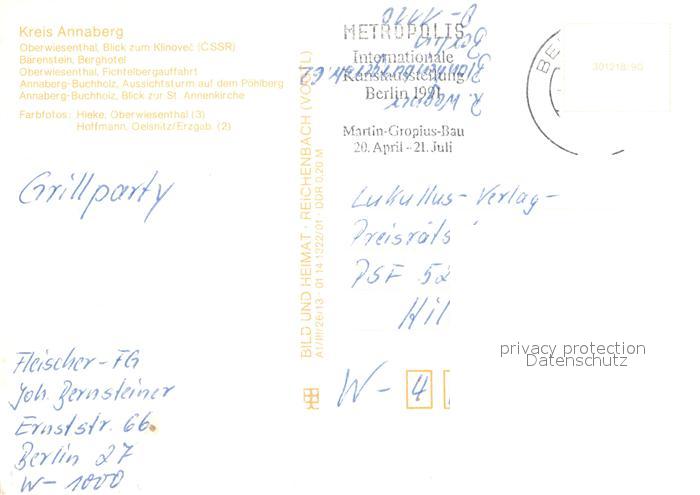 Kreis Annaberg
Oberwiesenthal, Blick zum Klinovec (ČSSR)
Bärenstein, Berghotel
Oberwiesenthal, Fichtelbergauffahrt
Annaberg-Buchholz, Aussichtsturm auf dem Pöhlberg
Annaberg-Buchholz, Blick zur St. Annenkirche
Farbfotos: Hieke, Oberwiesenthal (3)
Hoffmann, Oelsnitz/Erzgeb. (2)
Grillparty
Fleischer-FG
Joh. Bernsteiner
Ernststr. 66
Berlin 27
W-1000
BILD UND HEIMAT · REICHENBACH (VOGTL)
A1/III/26/13 · 01 14 1322/01 · DDR 0,20 M
METROPOLIS
Internationale
Kunstausstellung
Berlin 1991
Martin-Gropius-Bau
20. April - 21. Juli
Berlin
BE
301218/90
Lukullus-Verlag-
Preisräts
PSF 52
Hil
W- 4
privacy protection
Datenschutz